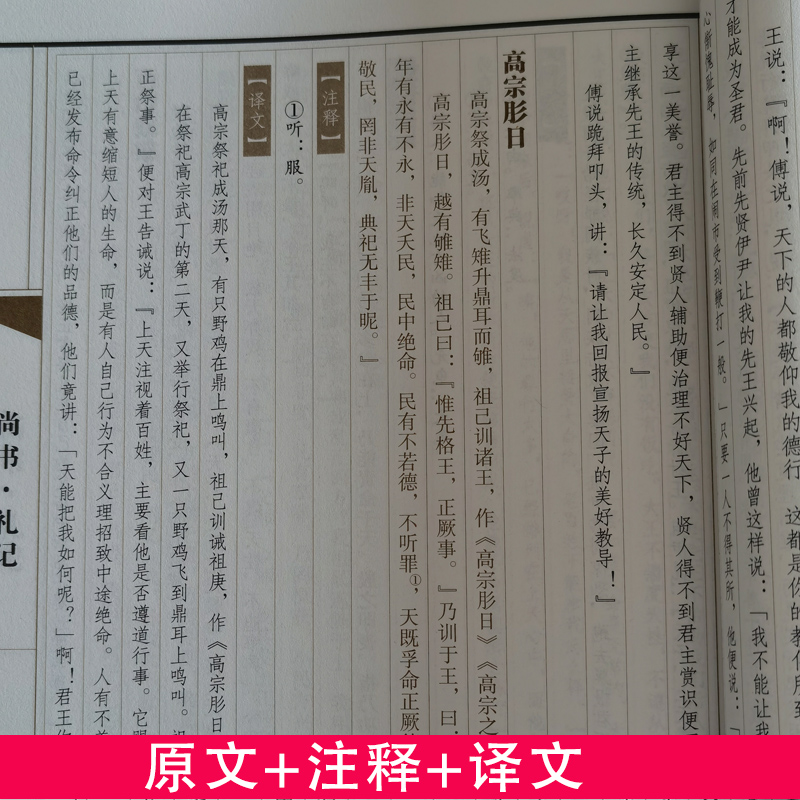 王说：『啊！傅说，天下的人都敬仰我的德行，这都是你的教
才能成为圣君。先前先贤伊尹让我的先王兴起，他曾这样说：「我不能让我
心惭愧耻辱，如同在闹市受到鞭打一般。」只要一人不得其所，他便说：「
享这一美誉。君主得不到贤人辅助便治理不好天下，贤人得不到君主赏识便
主继承先王的传统，长久安定人民。』
傅说跪拜叩头，讲：『请让我回报宣扬天子的美好教导！』
高宗肜日
高宗祭成汤，有飞雉升鼎耳而雊，祖己训诸王，作《高宗肜日》《高宗之
高宗肜日，越有雊雉。祖己曰：『惟先格王，正厥事。』乃训于王，曰：
年有永有不永，非天夭民，民中绝命。民有不若德，不听罪①，天既孚命正厥
敬民，罔非天胤，典祀无丰于昵。』
【注释】
①听：服。
【译文】
高宗祭祀成汤那天，有只野鸡在鼎上鸣叫，祖己训诫祖庚，作《高宗肜日
在祭祀高宗武丁的第二天，又举行祭祀，又一只野鸡飞到鼎耳上鸣叫。
正祭事。』便对王告诫说：『上天注视着百姓，主要看他是否遵道行事。它
上天有意缩短人的生命，而是有人自己行为不合义理招致中途绝命。人有不
已经发布命令纠正他们的品德，他们竟讲：「天能把我如何呢？」啊！君王
尚书·礼记
原文+注释+译文